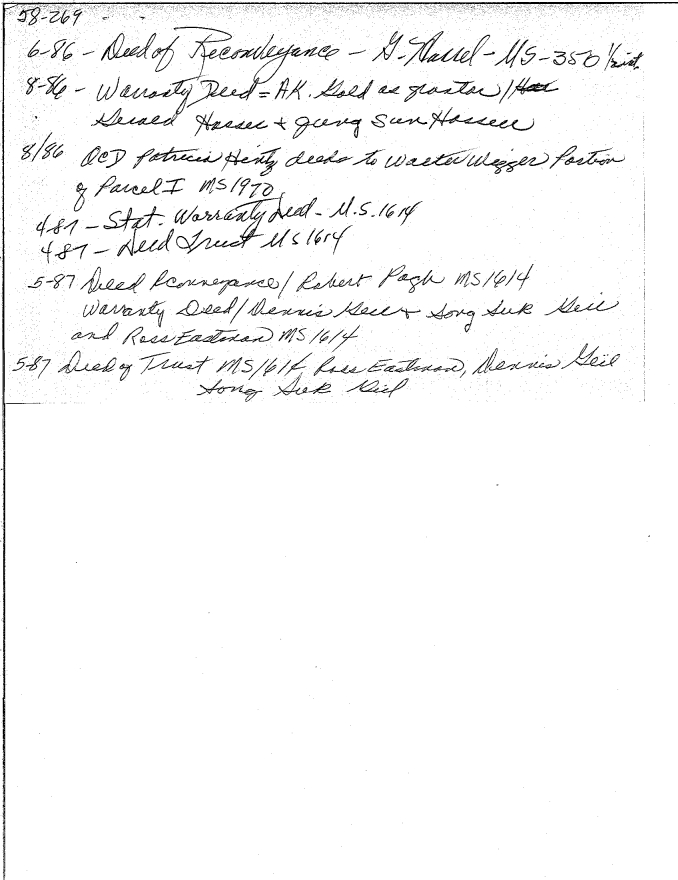 58-269
6-86 - Deed of Reconveyance - G. Hassel - MS-350 1/2 int.
8-86 - Warranty Deed = AK. Gold as grantor /
Gerald Hassel + Jung Sun Hassell
8/86 QCD Patricia Hentz deeds to Walter Wigger Portion
of Parcel I MS 1970
4-87 - Stat. Warranty Deed - M.S. 1614
4-87 - Deed Trust MS 1614
5-87 Deed Rconveyance / Robert Pagh MS 1614
Warranty Deed / Dennis Geil + Song Suk Geil
and Ross Eastman MS 1614
5-87 Deed of Trust MS 1614, Ross Eastman, Dennis Geil
Song Suk Geil